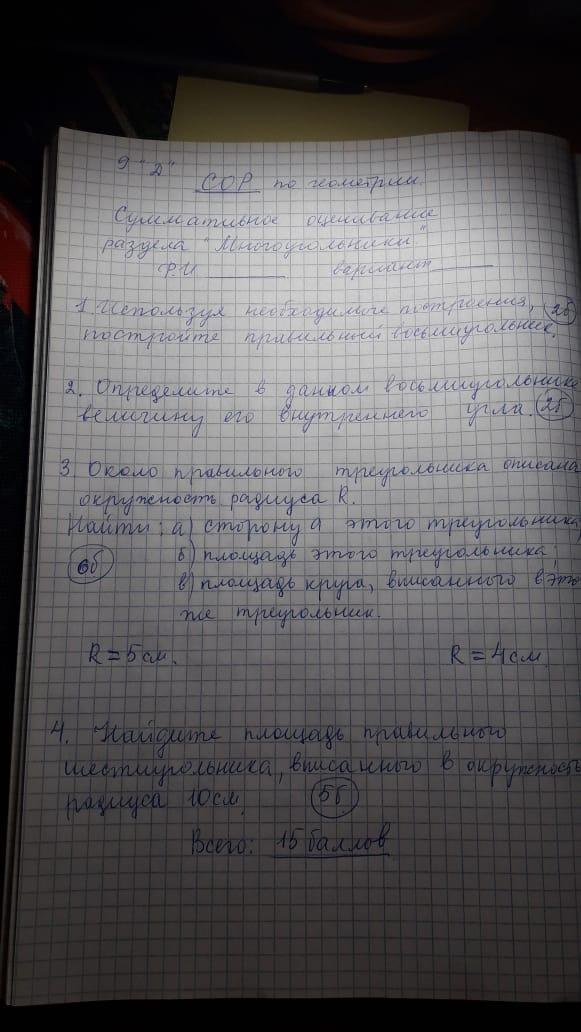 9 "Д"
СОР по геометрии.
Суммативное оценивание
раздела "Многоугольники."
Ф.И. ________ вариант ______
1. Используя необходимые построения, 2б
постройте правильный восьмиугольник.
2. Определите в данном восьмиугольнике
величину его внутреннего угла. 2б
3. Около правильного треугольника описана
окружность радиуса R.
Найти: а) сторону а этого треугольника;
6б б) площадь этого треугольника;
в) площадь круга, вписанного в это
же треугольник.
R = 5 см. R = 4 см.
4. Найдите площадь правильного
шестиугольника, вписанного в окружность
радиуса 10 см. 5б
Всего: 15 баллов